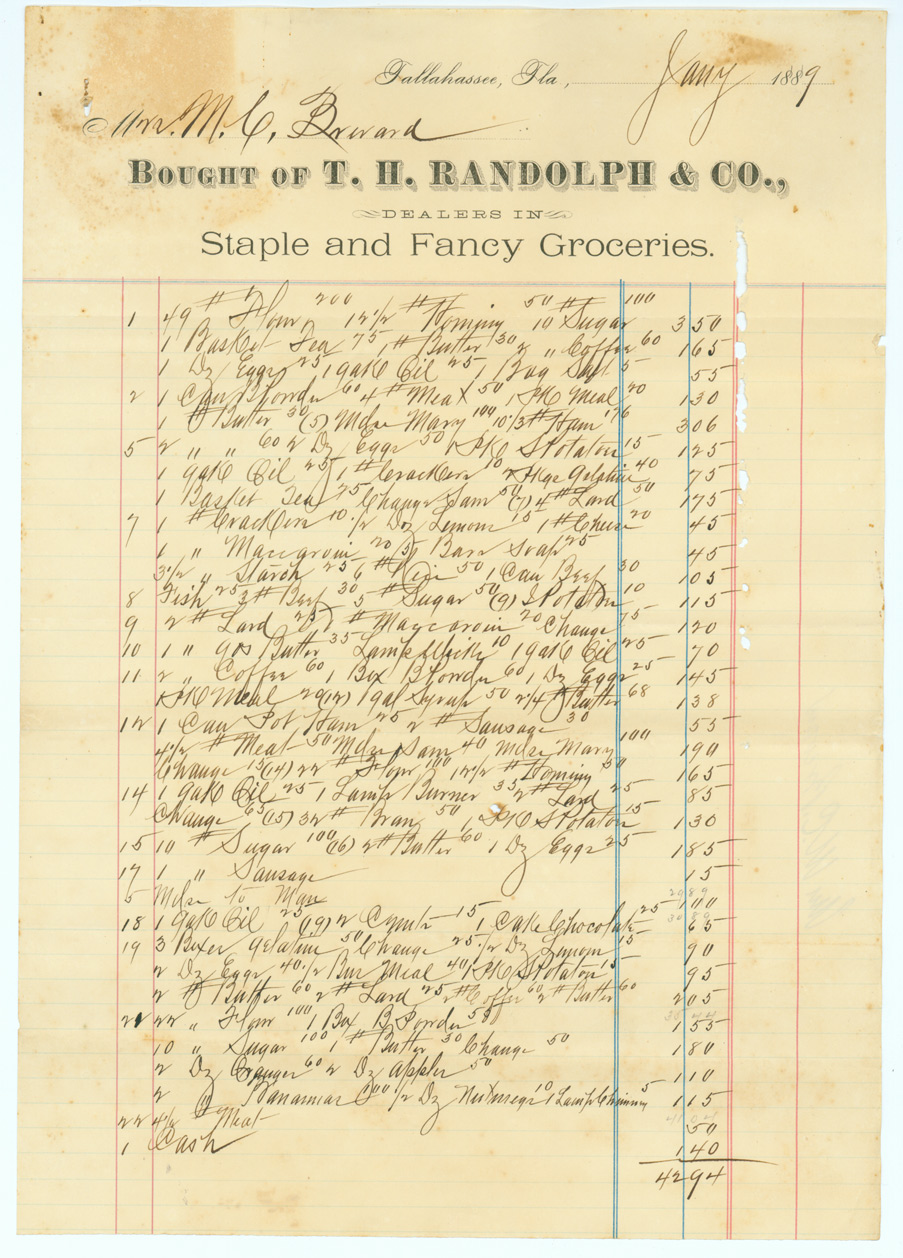 Tallahassee, Fla., Jany 1889
Mrs. M. C. Brevard
BOUGHT OF T. H. RANDOLPH & CO.,
DEALERS IN
Staple and Fancy Groceries.
1 49 # Flour 200 12 1/2 # Hominy 50 # Sugar 100 350
1 Basket Tea 75 1 # Butter 30 2 " Coffee 60 165
1 Dz Eggs 25 1 galK Oil 25 1 Bag Salt 5 55
2 1 Can B Powder 60 4 # Meat 50 1 PK Meal 20 130
1 # Butter 30 (5) Mdse Mary 100 10 1/3 # Ham 176 306
5 2 " " 60 2 Dz Eggs 50 1 PK S Potatoes 15 125
1 galK Oil 25 1 # Crackers 10 Pkgs Gelatine 40 75
1 Basket Tea 75 Change Sam 50 (7) 4 # Lard 50 175
7 1 # Crackers 10 1/2 Dz Lemons 15 1 # Cheese 20 45
1 " Maccaroni 20 Bars Soap 25 45
3 1/2 " Starch 25 6 # Rice 50 1 Can Beef 30 105
8 Fish 25 3 # Beef 30 5 # Sugar 50 (9) S Potatoes 10 115
9 2 # Lard 25 # Maccaroni 20 Change 75 120
10 1 " Butter 35 Lamp Wicks 10 1 galK Oil 25 70
11 2 " Coffee 60 1 Box B Powder 60 1 Dz Eggs 25 145
PK Meal 20 (12) 1 gal Syrup 50 2 1/4 # Butter 68 138
12 1 Can Pot Ham 25 2 # Sausage 30 55
4 1/2 # Meat 50 Mdse Sam 40 Mdse Mary 100 190
Change 15 (14) 22 # Flour 100 12 1/2 # Hominy 50 165
14 1 galK Oil 25 1 Lamp Burner 35 2 # Lard 25 85
Change 65 (15) 32 # Bran 50 1 PK S Potatoes 15 130
15 10 # Sugar 100 (16) 2 # Butter 60 1 Dz Eggs 25 185
17 1 " Sausage 15
5 Mdse to Man 100
18 1 galK Oil 25 (19) 2 15 1 Cake Chocolate 25 65
19 3 Boxes Gelatine 50 Change 25 1/2 Dz Lemons 15 90
2 Dz Eggs 40 1/2 Bus Meal 40 1 PK S Potatoes 15 95
2 # Butter 60 2 # Lard 25 2 # Coffee 60 2 # Butter 60 205
21 22 " Flour 100 1 Box B Powder 55 155
10 " Sugar 100 1 # Butter 30 Change 50 180
2 Dz Oranges 60 2 Dz Apples 50 110
2 " Bananas 100 1/2 Dz Nutmegs 10 1 Lamp Chimney 5 115
22 4 1/2 # Meat 50
1 Cash 140
4294